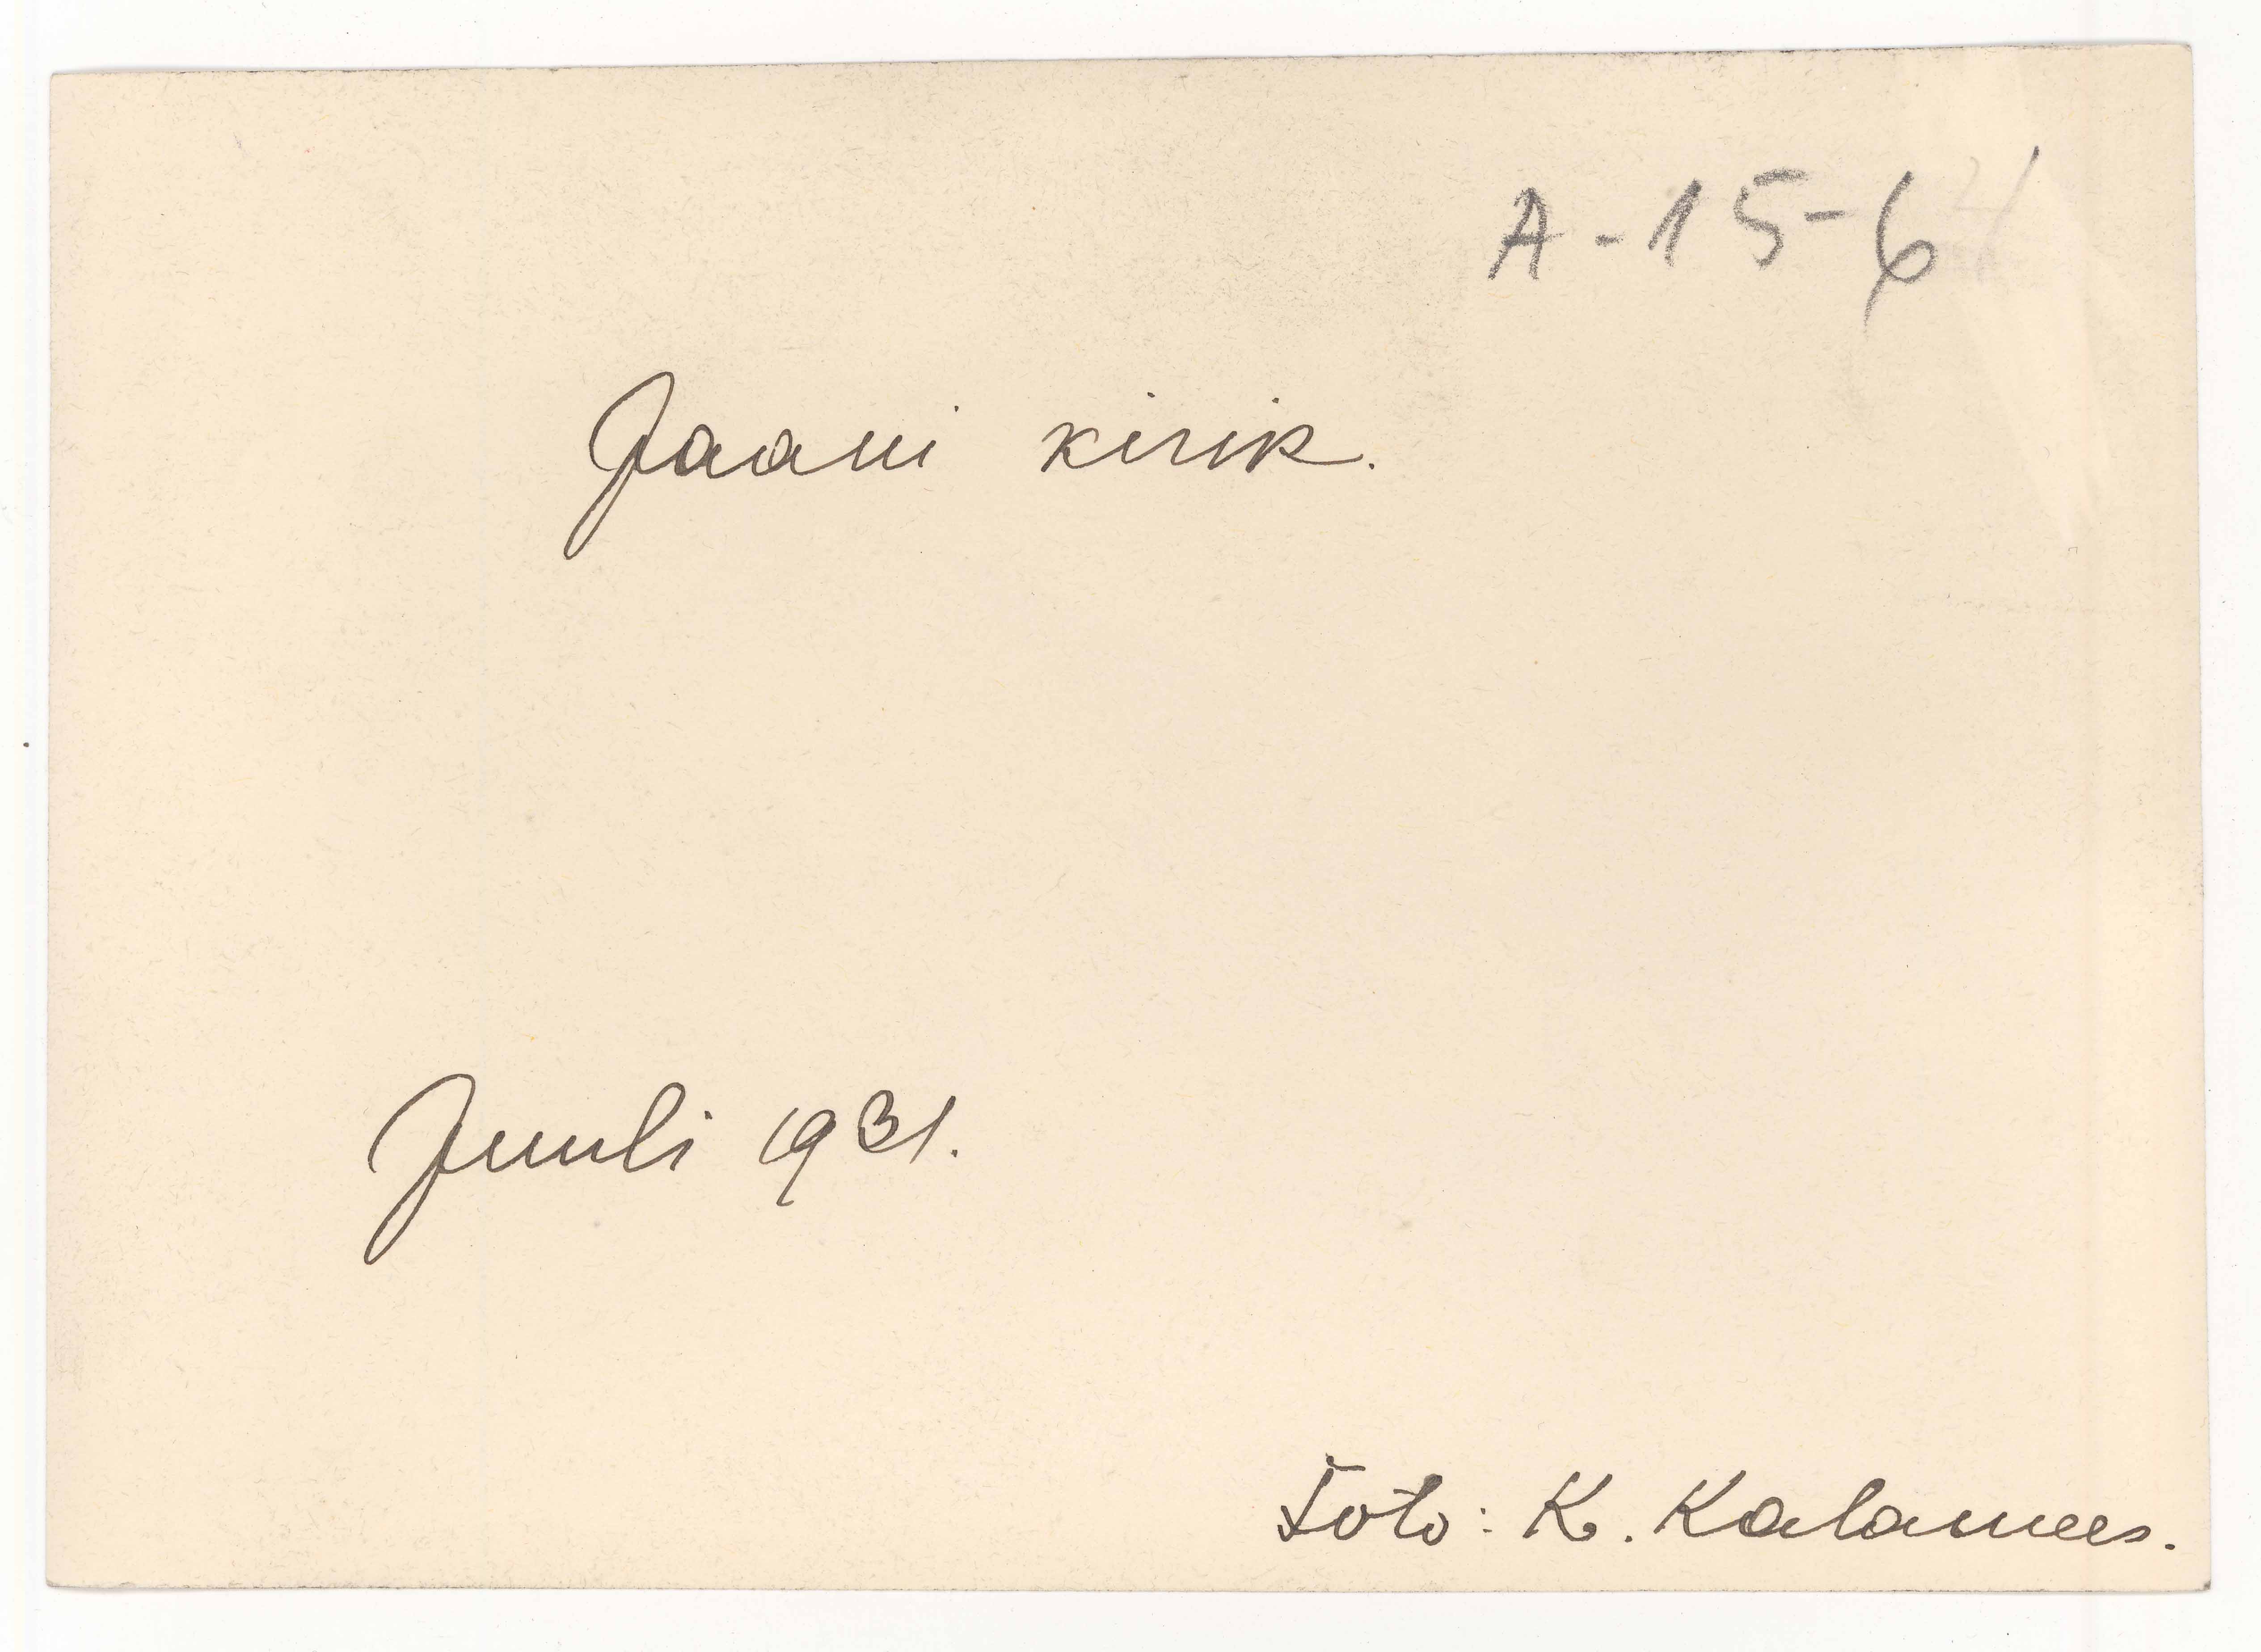 A-15-6
Jaani kirik.
Juuli 1931.
Foto: K. Kalamees.